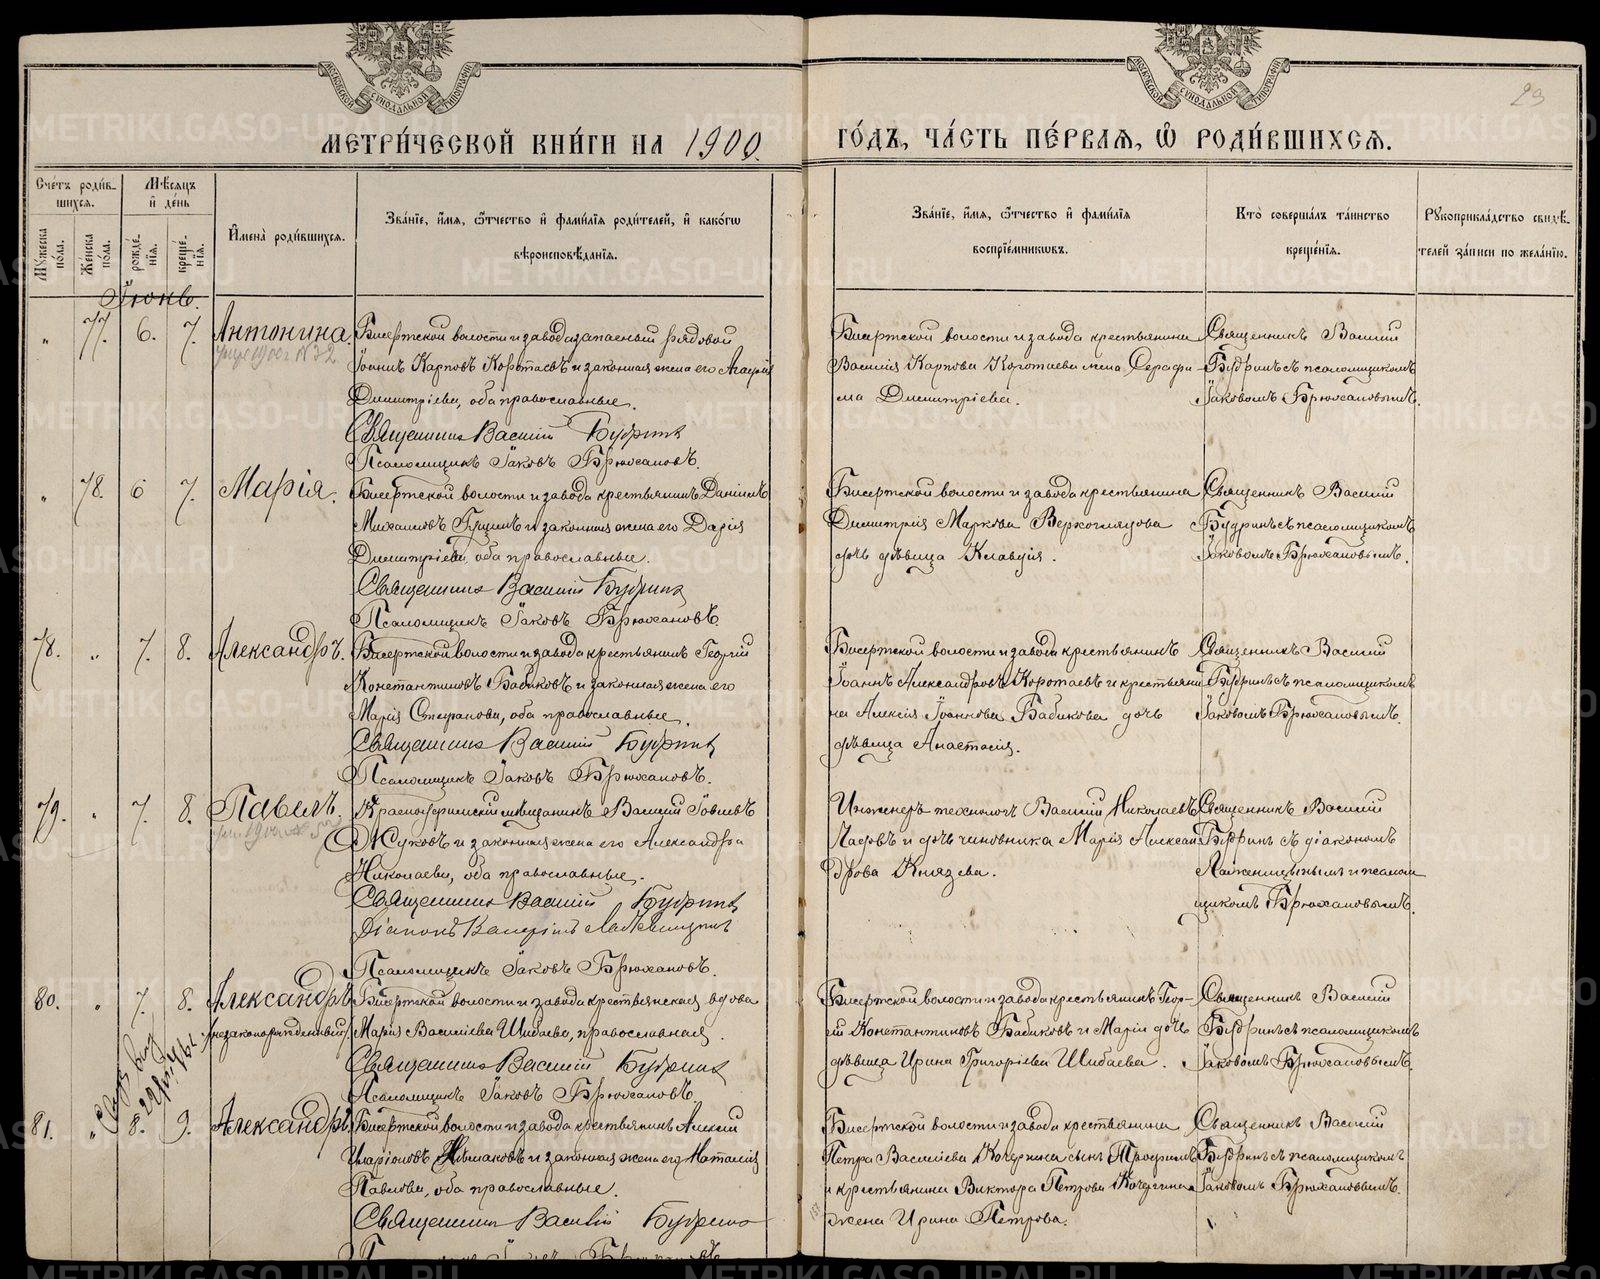 МОСКОВСКОЙ СѴНОДАЛЬНОЙ ТИПОГРАФІИ
МОСКОВСКОЙ СѴНОДАЛЬНОЙ ТИПОГРАФІИ
23
МЕТРИ́ЧЕСКОЙ КНИ́ГИ НА 1900.
ГО́ДЪ, ЧА́СТЬ ПЕ́РВАѦ, Ѽ РОДИ́ВШИХСѦ.
Сче́тъ роди́в-
шихсѧ.
Мꙋ́жеска по́ла.
Же́нска по́ла.
Мѣ́сѧцъ и҆ де́нь
рожде́нїѧ.
креще́нїѧ.
И҆мена̀ роди́вшихсѧ.
Зва́нїе, и҆́мѧ, ѻ҆́тчество и҆ фами́лїѧ роди́телей, и҆ како́гѡ
вѣроисповѣ́данїѧ.
Зва́нїе, и҆́мѧ, ѻ҆́тчество и҆ фами́лїѧ
воспрїе́мникѡвъ.
Кто̀ соверша́лъ та́инство
креще́нїѧ.
Рꙋкоприкла́дство свидѣ́-
телей за́писи по жела́нїю.
Іюнь.
" 77. 6. 7. Антонина.
Бисертской волости и завода запасный рядовой
Іоаннъ Карповъ Коротаевъ и законная жена его
Димитріева, оба православные.
Священникъ Василій Будринъ
Псаломщикъ Іаковъ Брюхановъ.
Бисертской волости и завода крестьянина
Василія Карпова Коротаева жена Серафи-
ма Димитріева.
Священникъ Василій
Будринъ съ псаломщикомъ
Іаковомъ Брюхановымъ.
" 78. 6 7. Марія.
Бисертской волости и завода крестьянинъ Даніилъ
Михаиловъ и законная жена его Дарія
Димитріева, оба православные.
Священникъ Василій Будринъ
Псаломщикъ Іаковъ Брюхановъ.
Бисертской волости и завода крестьянина
Димитрія Маркова Верхоглядова
дочь дѣвица Клавдія.
Священникъ Василій
Будринъ съ псаломщикомъ
Іаковомъ Брюхановымъ.
78. " 7. 8. Александръ.
Бисертской волости и завода крестьянинъ Георгій
Константиновъ Бабиковъ и законная жена его
Марія Стефанова, оба православные.
Священникъ Василій Будринъ
Псаломщикъ Іаковъ Брюхановъ.
Бисертской волости и завода крестьянинъ
Іоаннъ Александровъ Коротаевъ и крестьяни
на Алексія Іоаннова Бабикова дочь
дѣвица Анастасія.
Священникъ Василій
Будринъ съ псаломщикомъ
Іаковомъ Брюхановымъ.
79. " 7. 8. Павелъ.
Красноуфимскій мѣщанинъ Василій Іовлевъ
Жуковъ и законная жена его Александра
Николаева, оба православные.
Священникъ Василій Будринъ
Діаконъ
Псаломщикъ Іаковъ Брюхановъ.
Инженеръ-технологъ Василій Николаевъ
и дочь чиновника Марія Алексан-
дрова Князева.
Священникъ Василій
Будринъ съ діакономъ
и псалом
щикомъ Брюхановымъ.
80. " 7. 8. Александръ
(незаконорожденный).
Бисертской волости и завода крестьянская вдова
Марія Василіева Шибаева, православная.
Священникъ Василій Будринъ
Псаломщикъ Іаковъ Брюхановъ.
Бисертской волости и завода крестьянинъ Геор-
гій Константиновъ Бабиковъ и Маріи дочь
дѣвица Ирина Григоріева Шибаева.
Священникъ Василій
Будринъ съ псаломщикомъ
Іаковомъ Брюхановымъ.
81. " 8. 9. Александръ.
Бисертской волости и завода крестьянинъ Алексій
Иларіоновъ и законная жена его Наталія
Павлова, оба православные.
Священникъ Василій Будринъ
Бисертской волости и завода крестьянина
Петра Василіева Кочергина сынъ Трофимъ
и крестьянина Виктора Петрова Кочергина
жена Ирина Петрова.
Священникъ Василій
Будринъ съ псаломщикомъ
Іаковомъ Брюхановымъ.
METRIKI.GASO-URAL.RU